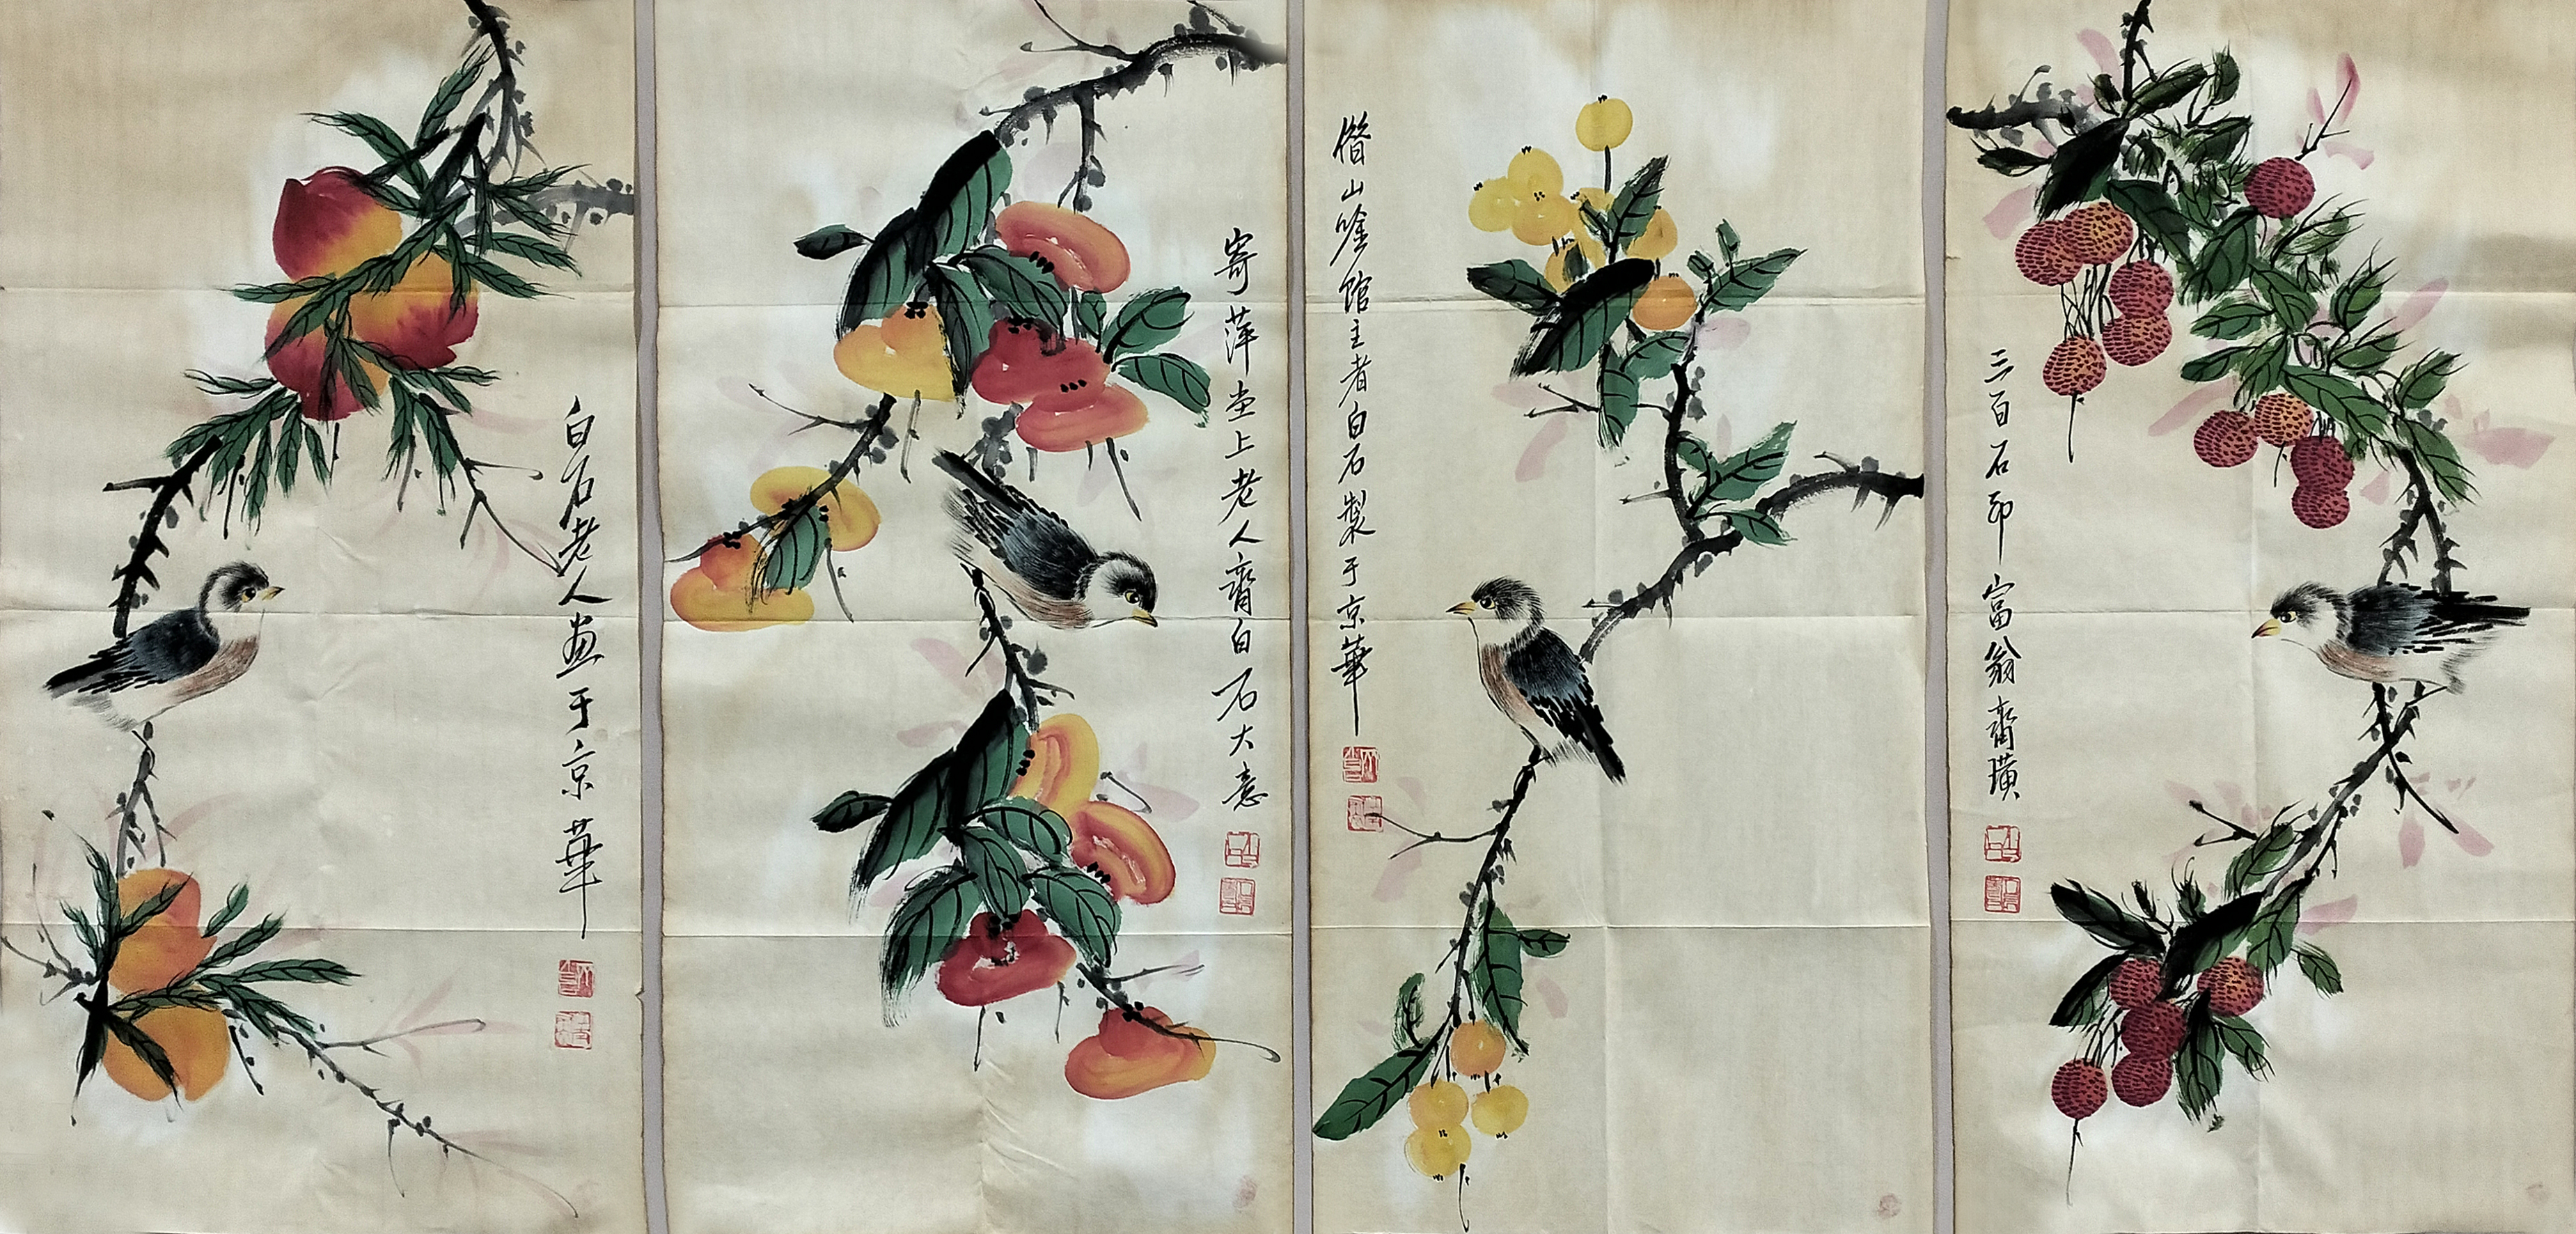 白石老人画于京華
寄萍堂上老人齊白石大意
借山唫馆主者白石製于京華
三百石印富翁齊璜